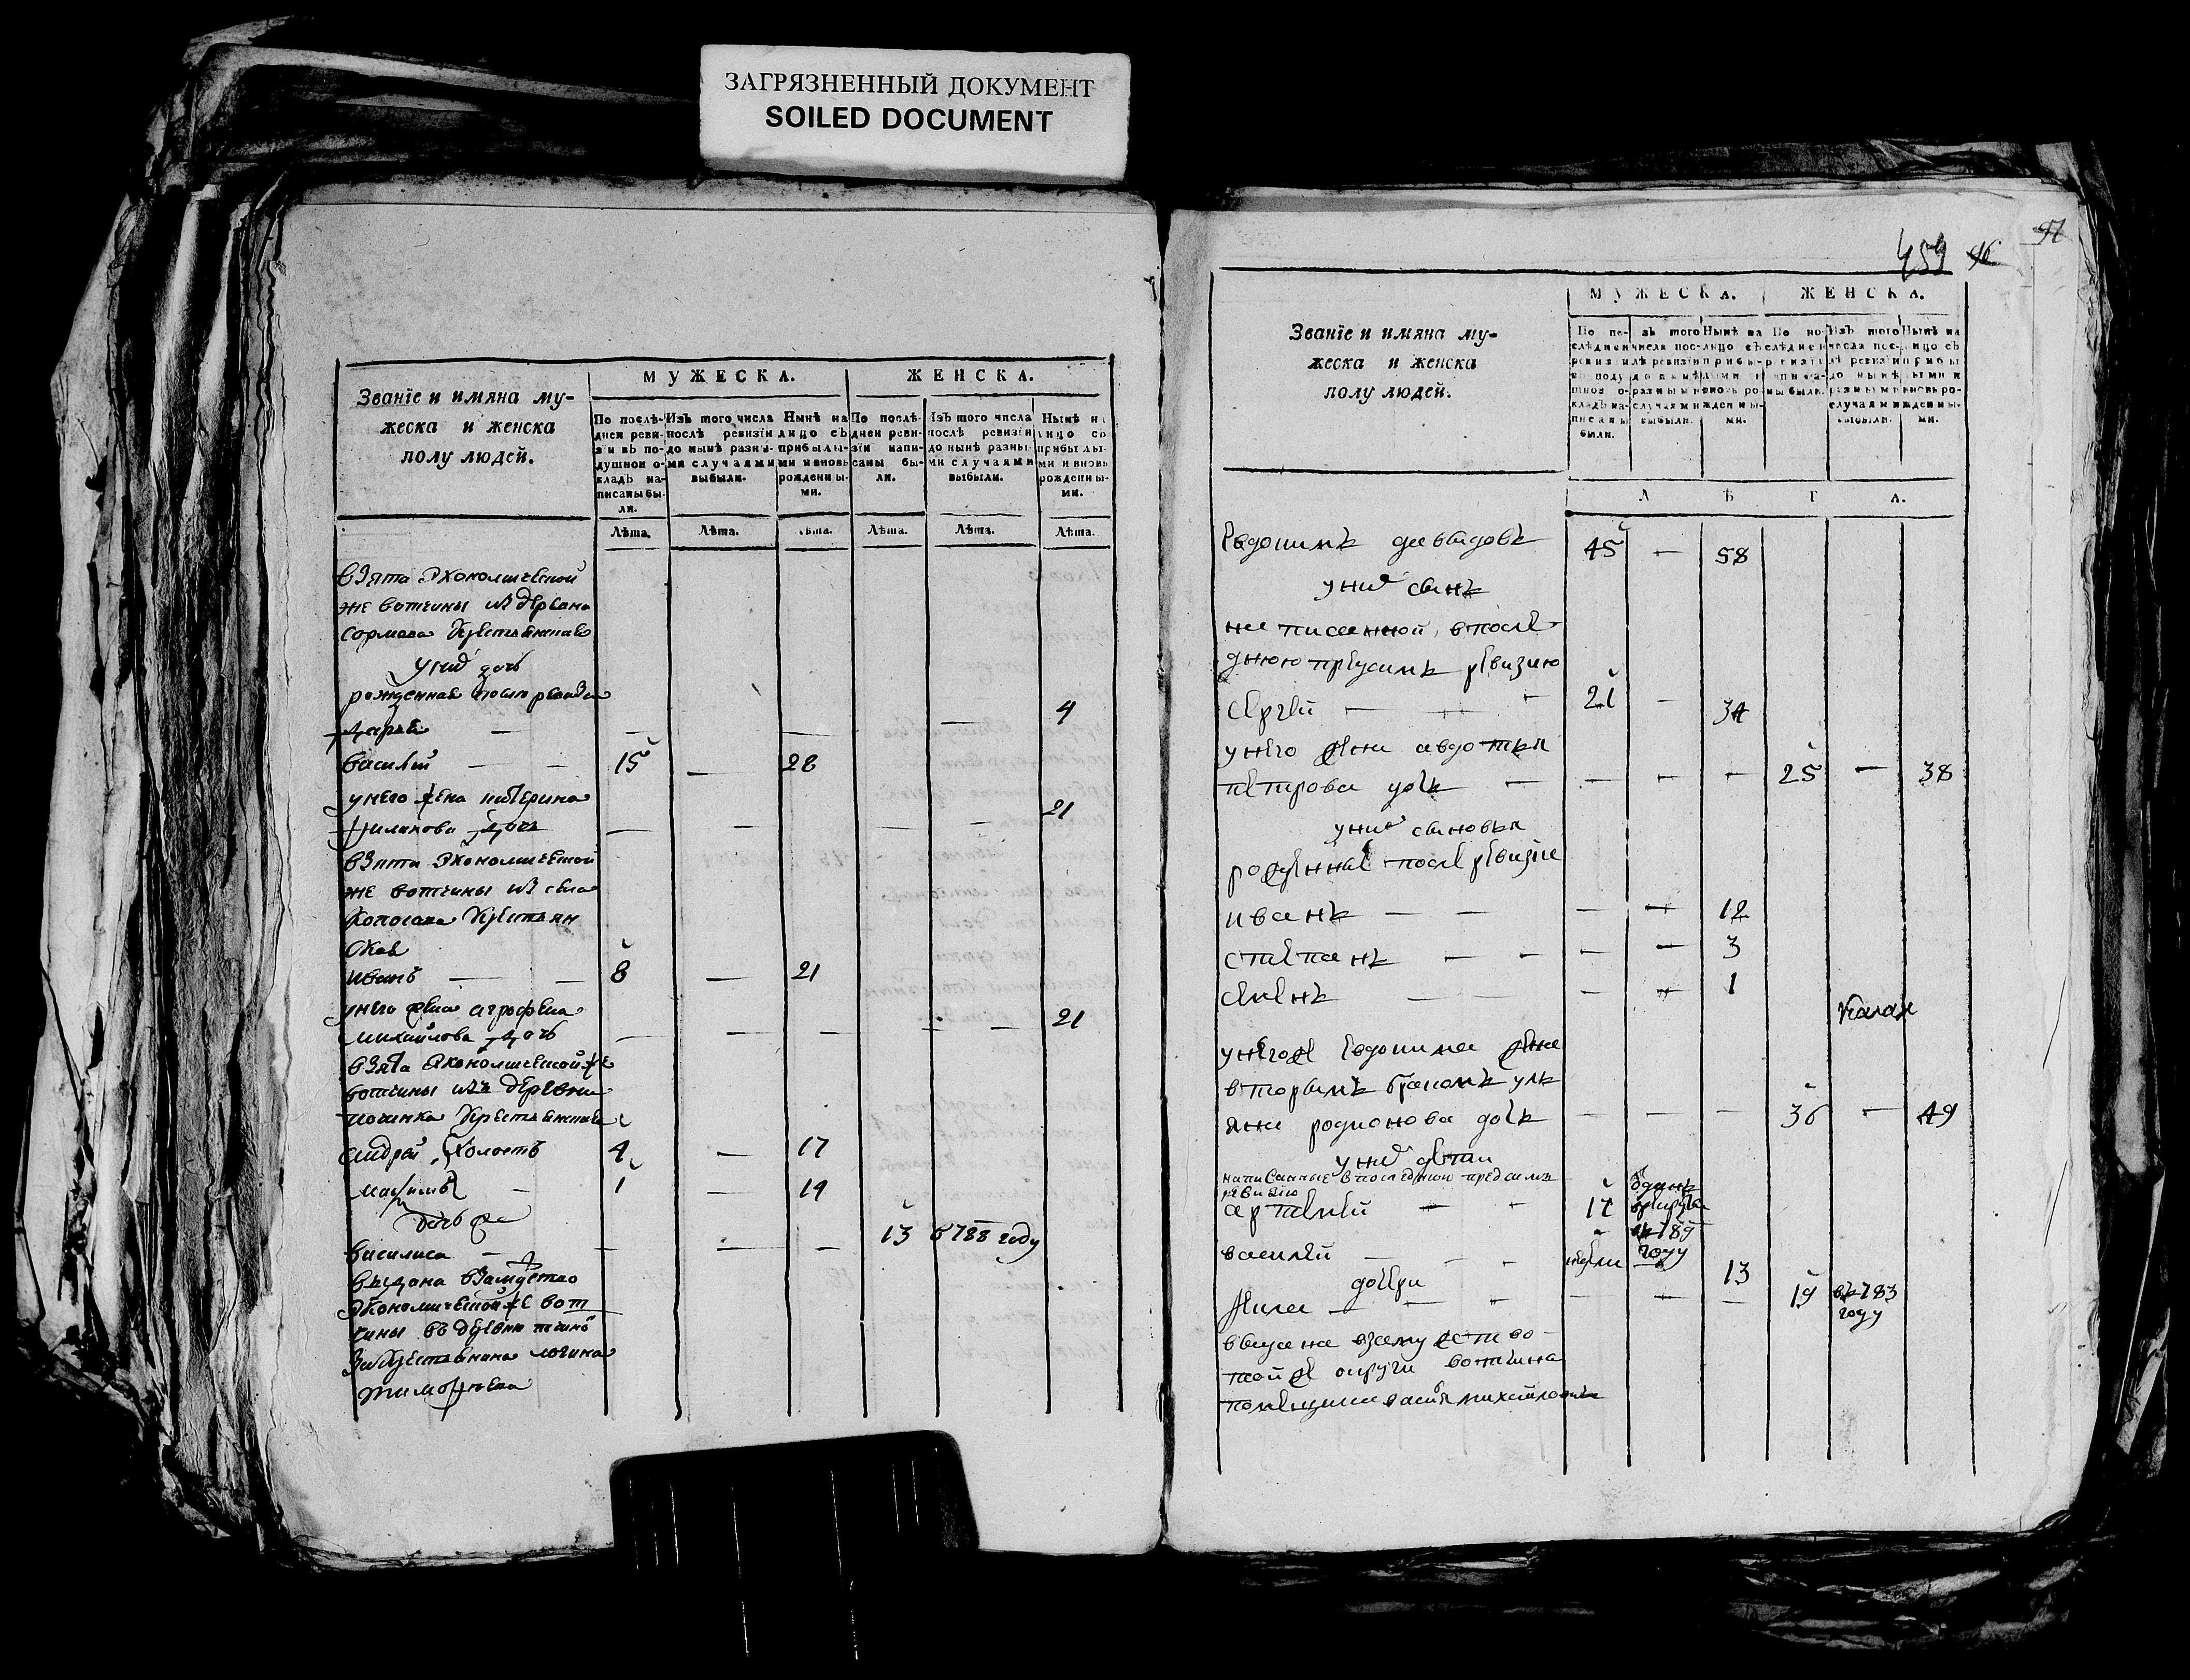 ЗАГРЯЗНЕННЫЙ ДОКУМЕНТ
SOILED DOCUMENT
МУЖЕСКА. ЖЕНСКА.
Званїе и имяна му-
жеска и женска
полу людей.
По послѣ-
днеи реви-
зїи въ по-
душнои о-
кладъ на-
писаны бы-
ли.
Изъ того числа
послѣ ревизїи
до нынѣ разны-
ми случаями
выбыли.
Нынѣ на
лицо съ
прибылы-
ми и вновь
рожденны-
ми.
По послѣ-
днеи реви-
зїи напи-
саны бы-
ли.
Изъ того числа
послѣ ревизїи
до нынѣ разны-
ми случаями
выбыли.
Нынѣ на
лицо съ
прибылы-
ми и вновь
рожденны-
ми.
Лѣта. Лѣта. Лѣта. Лѣта. Лѣта. Лѣта.
взята экономической
же вотчины из деревни
сормова крестьянская
у них дочь
рожденная после ревизи
дарья — — — — 4
василей — — 15 — 28
у него жена катерина
филипова дочь — — — — 21
взята экономической
же вотчины из села
копосова крестьян
ская
иванъ — — 8 — 21
у него жена аграфена
михайлова дочь — — — — — 21
взята экономической же
вотчины изъ деревни
починка крестьянская
андрей, холостъ 4 — 17
максимъ — 1 — 14
дочь же
василиса — — — — 13 в 788 году
выдана в замужство
экономической же вот
чины въ деревню
за крестьянина логина
тимофеева
459 96 97
МУЖЕСКА. ЖЕНСКА.
Званїе и имяна му-
жеска и женска
полу людей.
По по-
слѣднеи
ревизїи
въ поду
шнои о-
кладъ на-
писаны
были.
Изъ того
числа пос-
лѣ ревизїи
до нынѣ
разными
случаями
выбыли.
Нынѣ на
лицо съ
прибы-
лыми и
вновь ро-
жденны-
ми.
По по-
слѣднеи
ревизїи
написа-
ны были.
Изъ того
числа пос-
лѣ ревизїи
до нынѣ
разными
случаями
выбыли.
Нынѣ на
лицо съ
прибы
лыми и
вновь ро-
жденны-
ми.
Л Ѣ Т А.
Евдокимъ давыдовъ 45 — 58
у них сынъ
написанной в после
днюю пред симъ ревизию
сергей — — — 21 — 34
у него жена авдотья
петрова дочь — — — — 25 — 38
у них сыновья
рожденные после ревизие
иванъ — — — — 12
степанъ — — — — 3
семенъ — — — — 1
у него же Евдокима жена
вторымъ бракомъ уль
яна родионова дочь — — — 36 — 49
у них дети
написанные в последнюю пред симъ
ревизию
артемей — — 17 отданъ
в рекруты
въ 789
году
василей — — — недели 13
дочери
— — — — — — 19 въ 783
году
выдана в замужство
той же округи вотчина
помещика михайлова